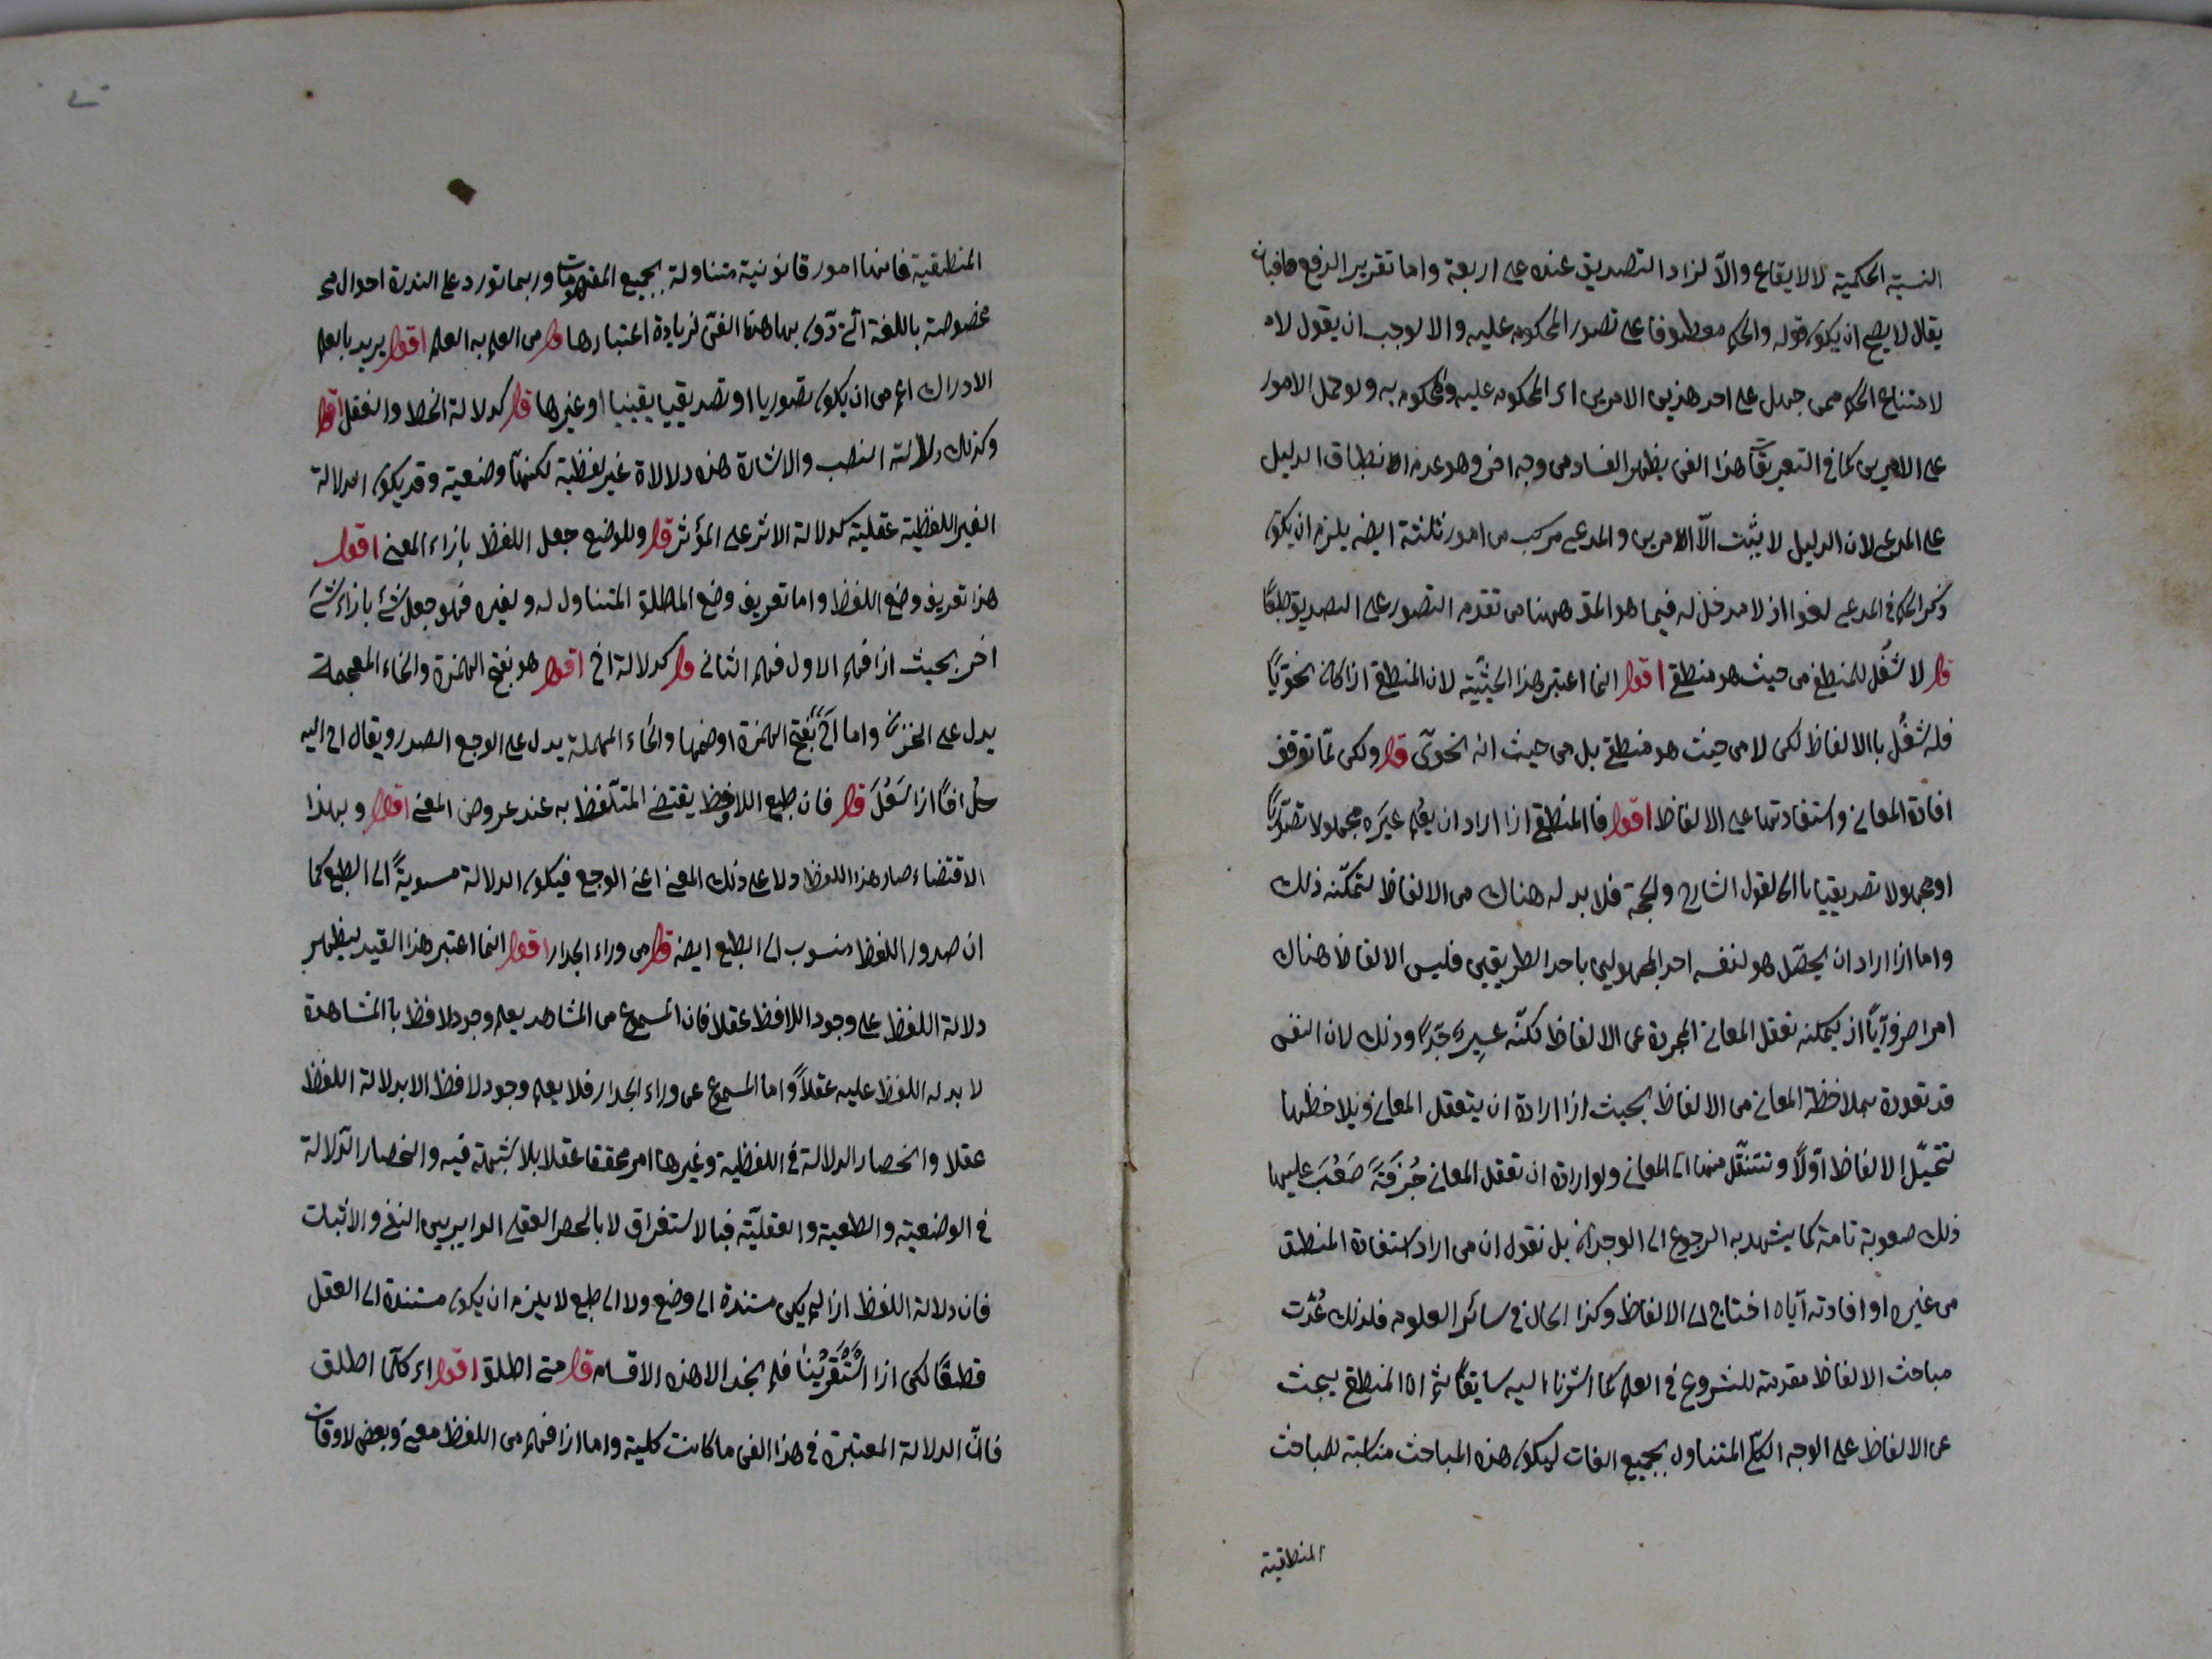 النسبة الحكمية لا الايقاع والّا لزاد التصديق عنده على اربعة واما تقرير الدفع فبان
يقال لا يصح ان يكون قوله والحكم معطوفا على تصور المحكوم عليه والا لوجب ان يقول لا
لامتناع الحكم ممن جهل على احد هذين الامرين اى المحكوم عليه والمحكوم به ولو حمل الامور
على الامرين كما فى التعريفات هذا الفن يظهر الفساد من وجه اخر وهو عدم انطباق الدليل
على المدعى لان الدليل لا يثبت الّا الامرين والمدعى مركب من امور ثلثة ايضه يلزم ان يكون
ذكر الحكم فى المدعى لغوا اذ لا مدخل له فيما هو المقصـ ههنا من تقدم التصور على التصديق طبعًا
قال لا شُغل للمنطقى من حيث هو منطقى اقول انما اعتبر هذا الحيثية لان المنطقى اذا كان نحويًّا
فله شغُل باالالفاظ لكن لا من حيث هو منطقى بل من حيث انه نحوىّ قال ولكن لمّا توقف
افادة المعانى واستفادتها على الالفاظ اقول فاالمنطقى اذا اراد ان يعلم غيَره مجهولا تصوّريًّا
او مجهولا تصديقيا باالقول الشارح والحجة فلا بد له هناك من الالفاظ ليتمكّنه ذلك
واما اذا اراد ان يحصّل هو لنفسه احد المجهولين باحد الطريقين فليس الالفاظ هناك
امرا ضروريًّا اذ يمكنه تعقل المعانى المجردة عن الالفاظ لكنّه عسِير جدًّا وذلك لان النفس
قد تعودة بملاحظة المعانى من الالفاظ بحيث اذا ارادة ان يتعقل المعانى ويلاحظها
تتخيّل الالفاظ اوّلًا وتنتقل منها الى المعانى ولو ارادة ان تعقل المعانى صَعُبَ عليها
ذلك صعوبة تامة كما يشهد به الرجوع الى الوجدان بل نقول ان من اراد استفادة المنطق
من غيره او افادته ايّاه احتاج الى الالفاظ وكذا الحال فى سائر العلوم فلذلك عُدّت
مباحث الالفاظ مقدمة للشروع فى العلم كما اشرنا اليه سابقًا ثم ان المنطقى يبحث
عن الالفاظ على الوجه الكلّى المتناول بجميع الغات ليكون هذه المباحث مناسبة للمباحث
المنطقية
المنطقية فانها امور قانونية متناولة بجميع المفهومات وربما تورد على الندرة احوال
مخصوصة باللغة التى دوّن بها هذا الفنّ لزيادة اعتبارها قال من العلم به العلم اقول يريد بالعلم
الادراك اعم من ان يكون تصوريا او تصديقيا يقينيا او غيرها قال كدلالة الخط والعقل اقول
وكذلك دلالة النصب والاشارة هذه دلالاة غير لفظية لكنها وضعية وقد يكون الدلالة
الغير اللفظية عقلية كدلالة الاثر على المؤثر قال وللوضع جعل اللفظ بازاء المعنى اقول
هذا تعريف وضع اللفظ واما تعريف وضع المطلق المتناول له ولغيره فهو جعل شئ بازاء شئ
اخر بحيث اذا فهم الاول فهم الثانى قال كدلالة اخ اقول هو بفتح الهمزة والخاء المعجمة
يدل على الحزن واما اَحْ بُفتح الهمزة او ضمها والحاء المهملة يدل على الوجع الصدر ويقال اح اليه
حل احًّا اذا سَعُلَ قال فان طبع اللافظ يقتضى المتلّفظ به عند عروض المعنى اقول وبهذا
الاقتضاء صار هذا اللفظ دلا على ذلك المعنى اعنى الوجع فيكون الدلالة مسوبةً الى الطبع كما
ان صدور اللفظ منسوب الى الطبع ايضه قال من وراء الجدار اقول انما اعتبر هذا القيد ليظهر
دلالة اللفظ على وجود اللافظ عقلا فان المسموع من المشاهد يعلم وجود لافظ باالمشاهدة
لا بدله اللفظ عليه عقلًا واما المسموع عن وراء الجدار فلا يعلم وجود لافظ الا بدلالة اللفظ
عقلا وانحصار الدلالة فى اللفظية وغيرها امر محققا عقلا بلا شبهة فيه وانحصار الدلالة
فى الوضعية والطعية والعقليّة فباالاستغراق لا بالحصر العقلى الداير بين النفى والاثبات
فان دلالة اللفظ اذا لم يكن مستندة الى وضع ولا الى طبع لا يلزم ان يكون مستندة الى العقل
قطعًا لكن اذا اسْتَقْرَيْنا فلم نجد الا هذه الاقسام قال متى اطلق اقول اى كلّما اطلق
فانّ الدلالة المعتبرة فى هذا الفن ما كانت كلية واما اذا فهم من اللفظ معنى وبعض لاوقات